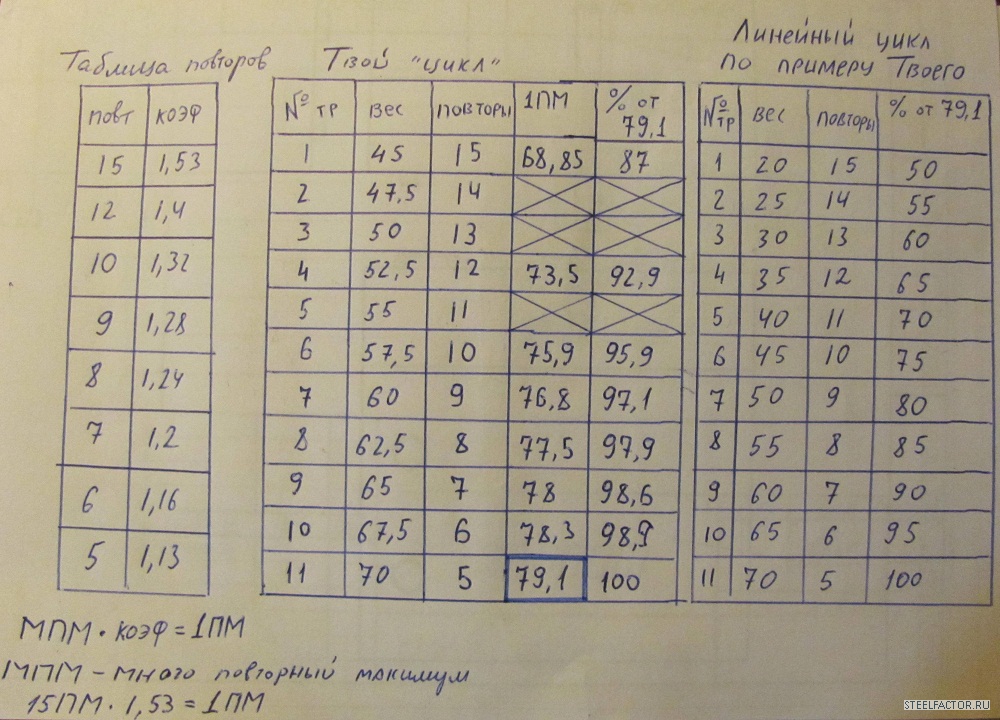 Таблица повторов
повт коэф
15 1,53
12 1,4
10 1,32
9 1,28
8 1,24
7 1,2
6 1,16
5 1,13
Твой "цикл"
№ тр вес повторы 1ПМ % от 79,1
1 45 15 68,85 87
2 47,5 14
3 50 13
4 52,5 12 73,5 92,9
5 55 11
6 57,5 10 75,9 95,9
7 60 9 76,8 97,1
8 62,5 8 77,5 97,9
9 65 7 78 98,6
10 67,5 6 78,3 98,9
11 70 5 79,1 100
Линейный цикл
по примеру Твоего
№ тр вес повторы % от 79,1
1 20 15 50
2 25 14 55
3 30 13 60
4 35 12 65
5 40 11 70
6 45 10 75
7 50 9 80
8 55 8 85
9 60 7 90
10 65 6 95
11 70 5 100
МПМ · коэф = 1ПМ
МПМ – много повторный максимум
15ПМ · 1,53 = 1ПМ
STEELFACTOR.RU